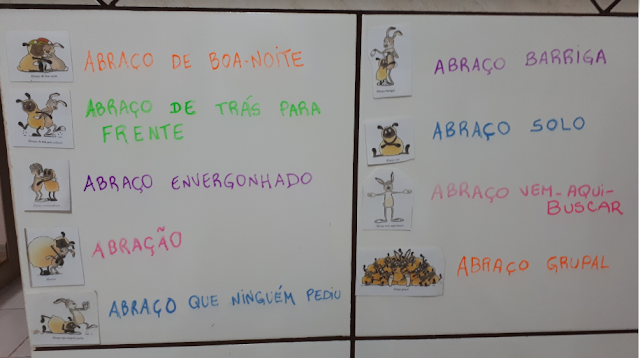 ABRAÇO DE BOA-NOITE
ABRAÇO DE TRÁS PARA
FRENTE
ABRAÇO ENVERGONHADO
ABRAÇÃO
ABRAÇO QUE NINGUÉM PEDIU
ABRAÇO BARRIGA
ABRAÇO SOLO
ABRAÇO VEM-AQUI-
BUSCAR
ABRAÇO GRUPAL